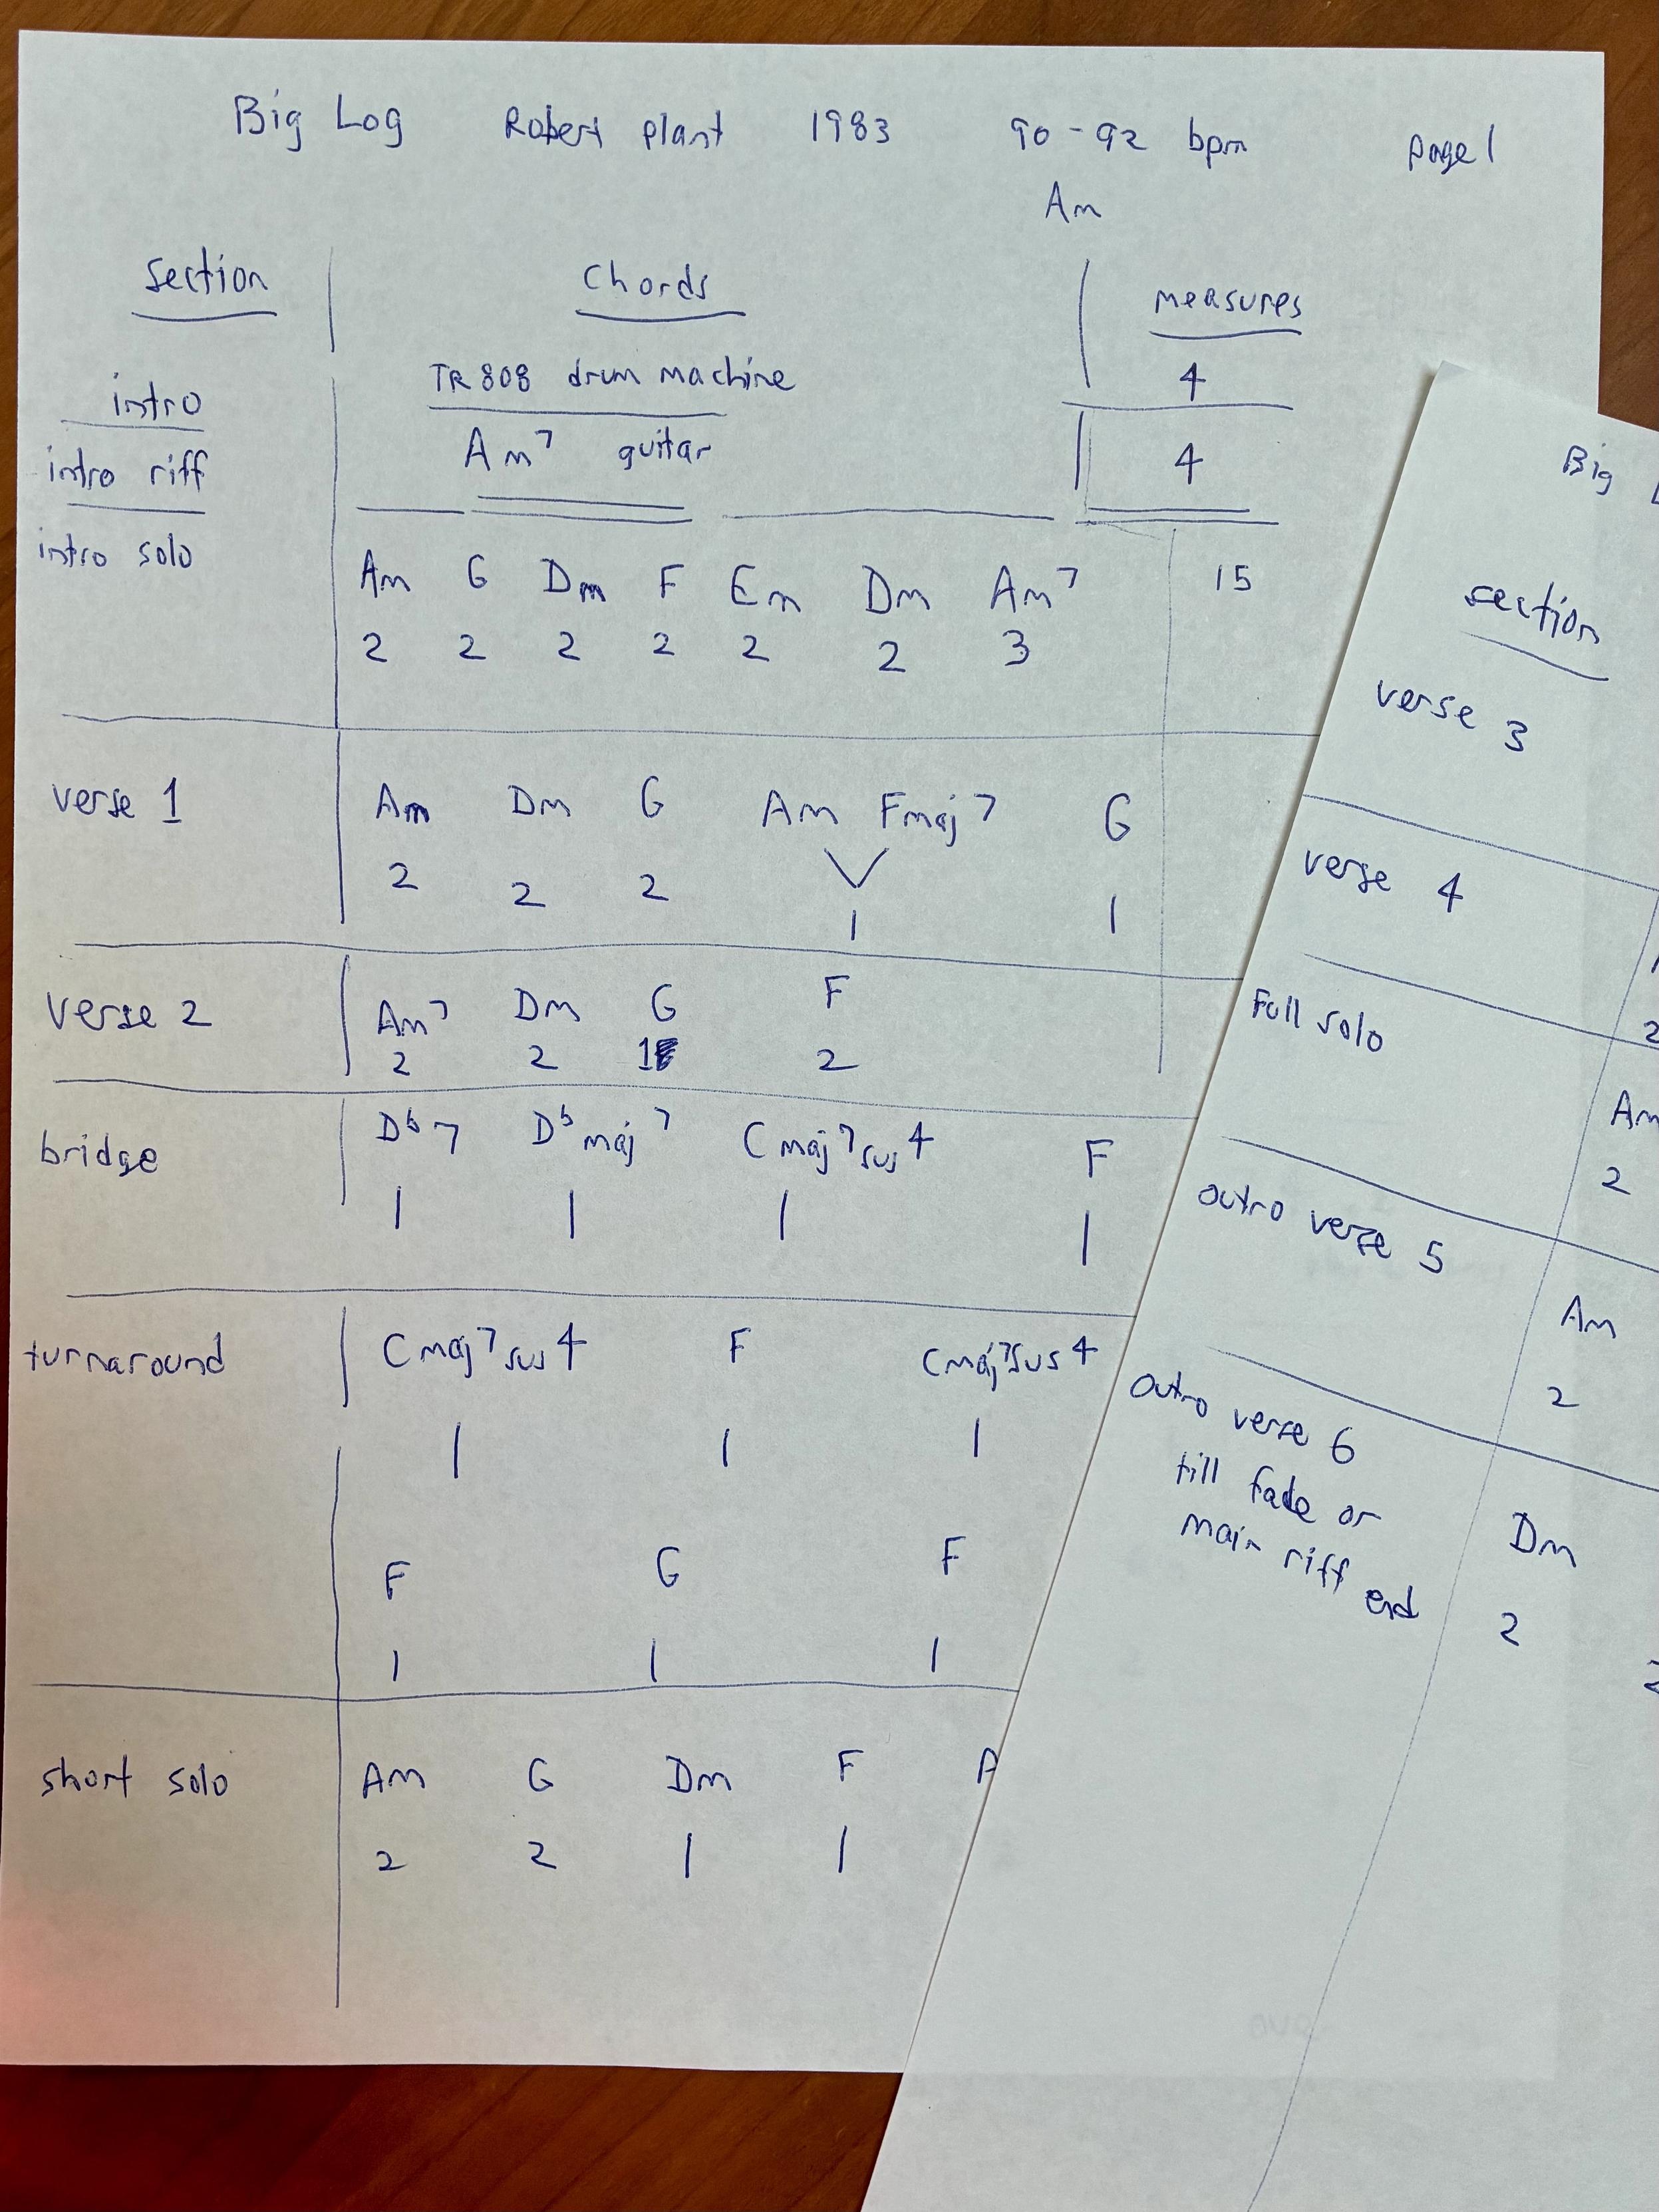 Big Log Robert Plant 1983 90-92 bpm page 1
Am
section chords measures
intro TR808 drum machine 4
intro riff Am7 guitar 4
intro solo Am G Dm F Em Dm Am7 15
2 2 2 2 2 2 3
verse 1 Am Dm G Am Fmaj7 G
2 2 2 1 1
verse 2 Am7 Dm G F
2 2 1 2
bridge Db7 Dbmaj7 Cmaj7sus4 F
1 1 1 1
turnaround Cmaj7sus4 F Cmaj7sus4
1 1 1
F G F
1 1 1
short solo Am G Dm F
2 2 1 1
Big
section
verse 3
verse 4
2
Full solo
Am
2
outro verse 5
Am
2
outro verse 6
till fade or
main riff end
Dm
2